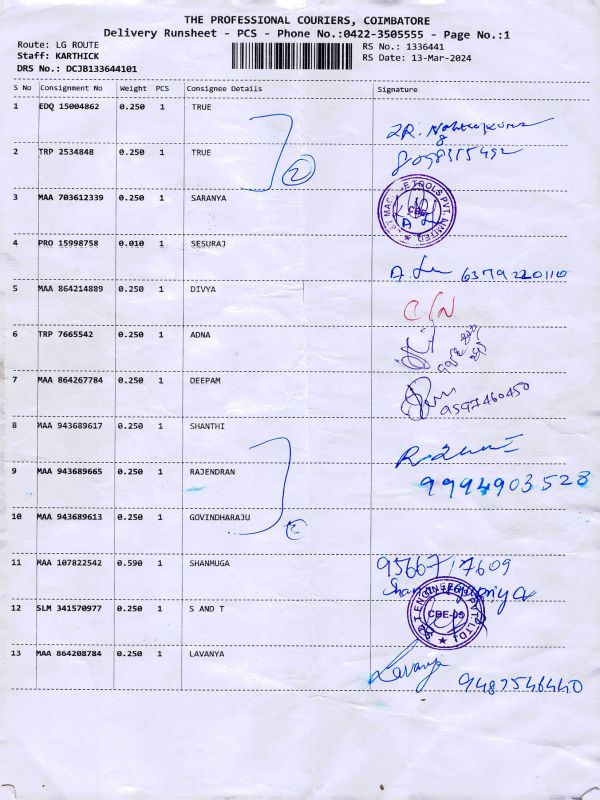 THE PROFESSIONAL COURIERS, COIMBATORE
Delivery Runsheet - PCS - Phone No.:0422-3505555 - Page No.:1
Route: LG ROUTE
Staff: KARTHICK
DRS No.: DCJB133644101
RS No.: 1336441
RS Date: 13-Mar-2024
S No Consignment No Weight PCS Consignee Details Signature
1 EDQ 15004862 0.250 1 TRUE
2 TRP 2534848 0.250 1 TRUE
2
3 MAA 703612339 0.250 1 SARANYA
4 PRO 15998758 0.010 1 SESURAJ
6379220110
5 MAA 864214889 0.250 1 DIVYA
6 TRP 7665542 0.250 1 ADNA
7 MAA 864267784 0.250 1 DEEPAM
9597460450
8 MAA 943689617 0.250 1 SHANTHI
9 MAA 943689665 0.250 1 RAJENDRAN
9994903528
10 MAA 943689613 0.250 1 GOVINDHARAJU
11 MAA 107822542 0.590 1 SHANMUGA
9566717609
12 SLM 341570977 0.250 1 S AND T
CBE-05
13 MAA 864208784 0.250 1 LAVANYA
Lavanya
9487546440